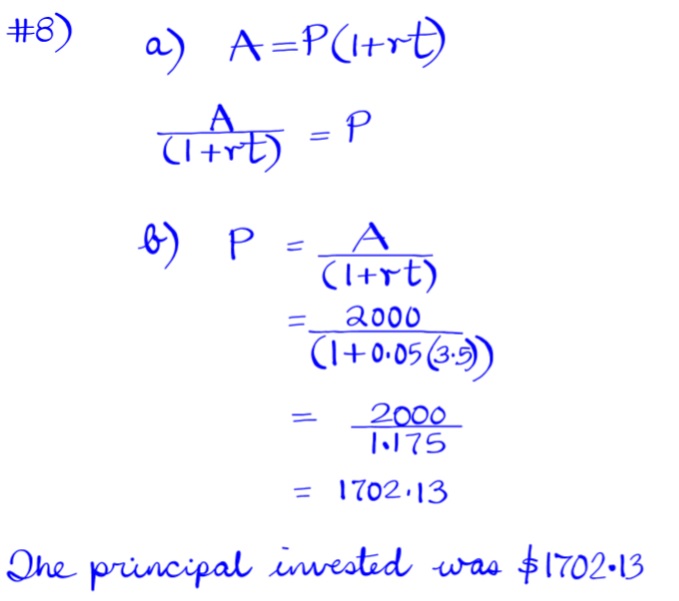 #8) a) A=P(1+rt)
A/(1+rt) = P
b) P = A/(1+rt)
= 2000/(1+0.05(3.5))
= 2000/1.175
= 1702.13
The principal invested was $1702.13